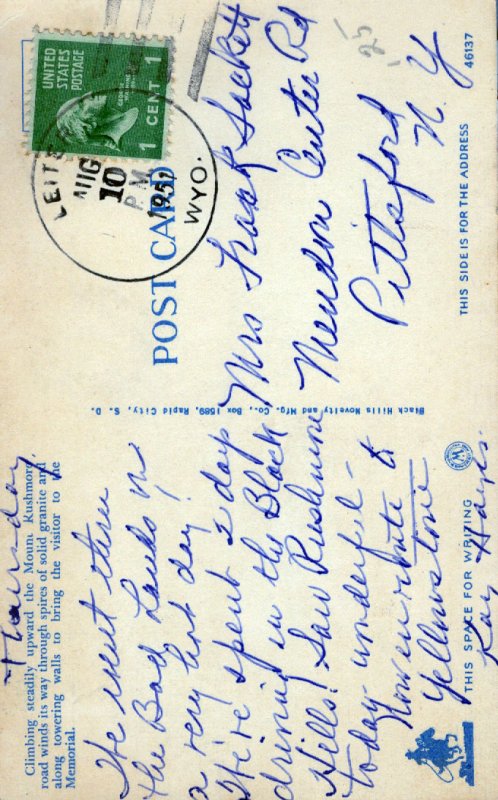 Thursday
Climbing steadily upward the Mount Rushmore
road winds its way through spires of solid granite and
along towering walls to bring the visitor to the
Memorial.
We went thru
the Bad Lands in
a very hot day.
We've spent 2 days
driving in the Black
Hills. Saw Rushmore
today - wonderful -
Now enroute to
Yellowstone
Kay
THIS SPACE FOR WRITING
Black Hills Novelty and Mfg. Co., Box 1589, Rapid City, S. D.
POST CARD
UNITED
STATES
POSTAGE
1 CENT 1
AUG
10
P.M.
1951
WYO.
25
Mrs Frank Sackett
Mendon Center Rd
Pittsford
N. Y
THIS SIDE IS FOR THE ADDRESS
46137